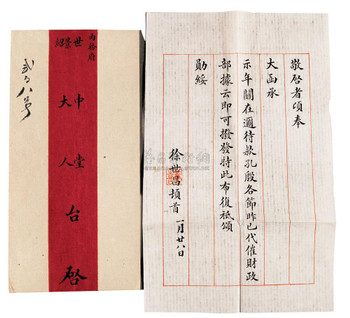 敬启者頃奉
大函承
示年關在邇待款孔殷各節昨已代催財政
部據云即可撥發特此布復祗頌
勛綏
徐世昌頓首 一月廿八日
內務府
世中堂
紹大人
台啓